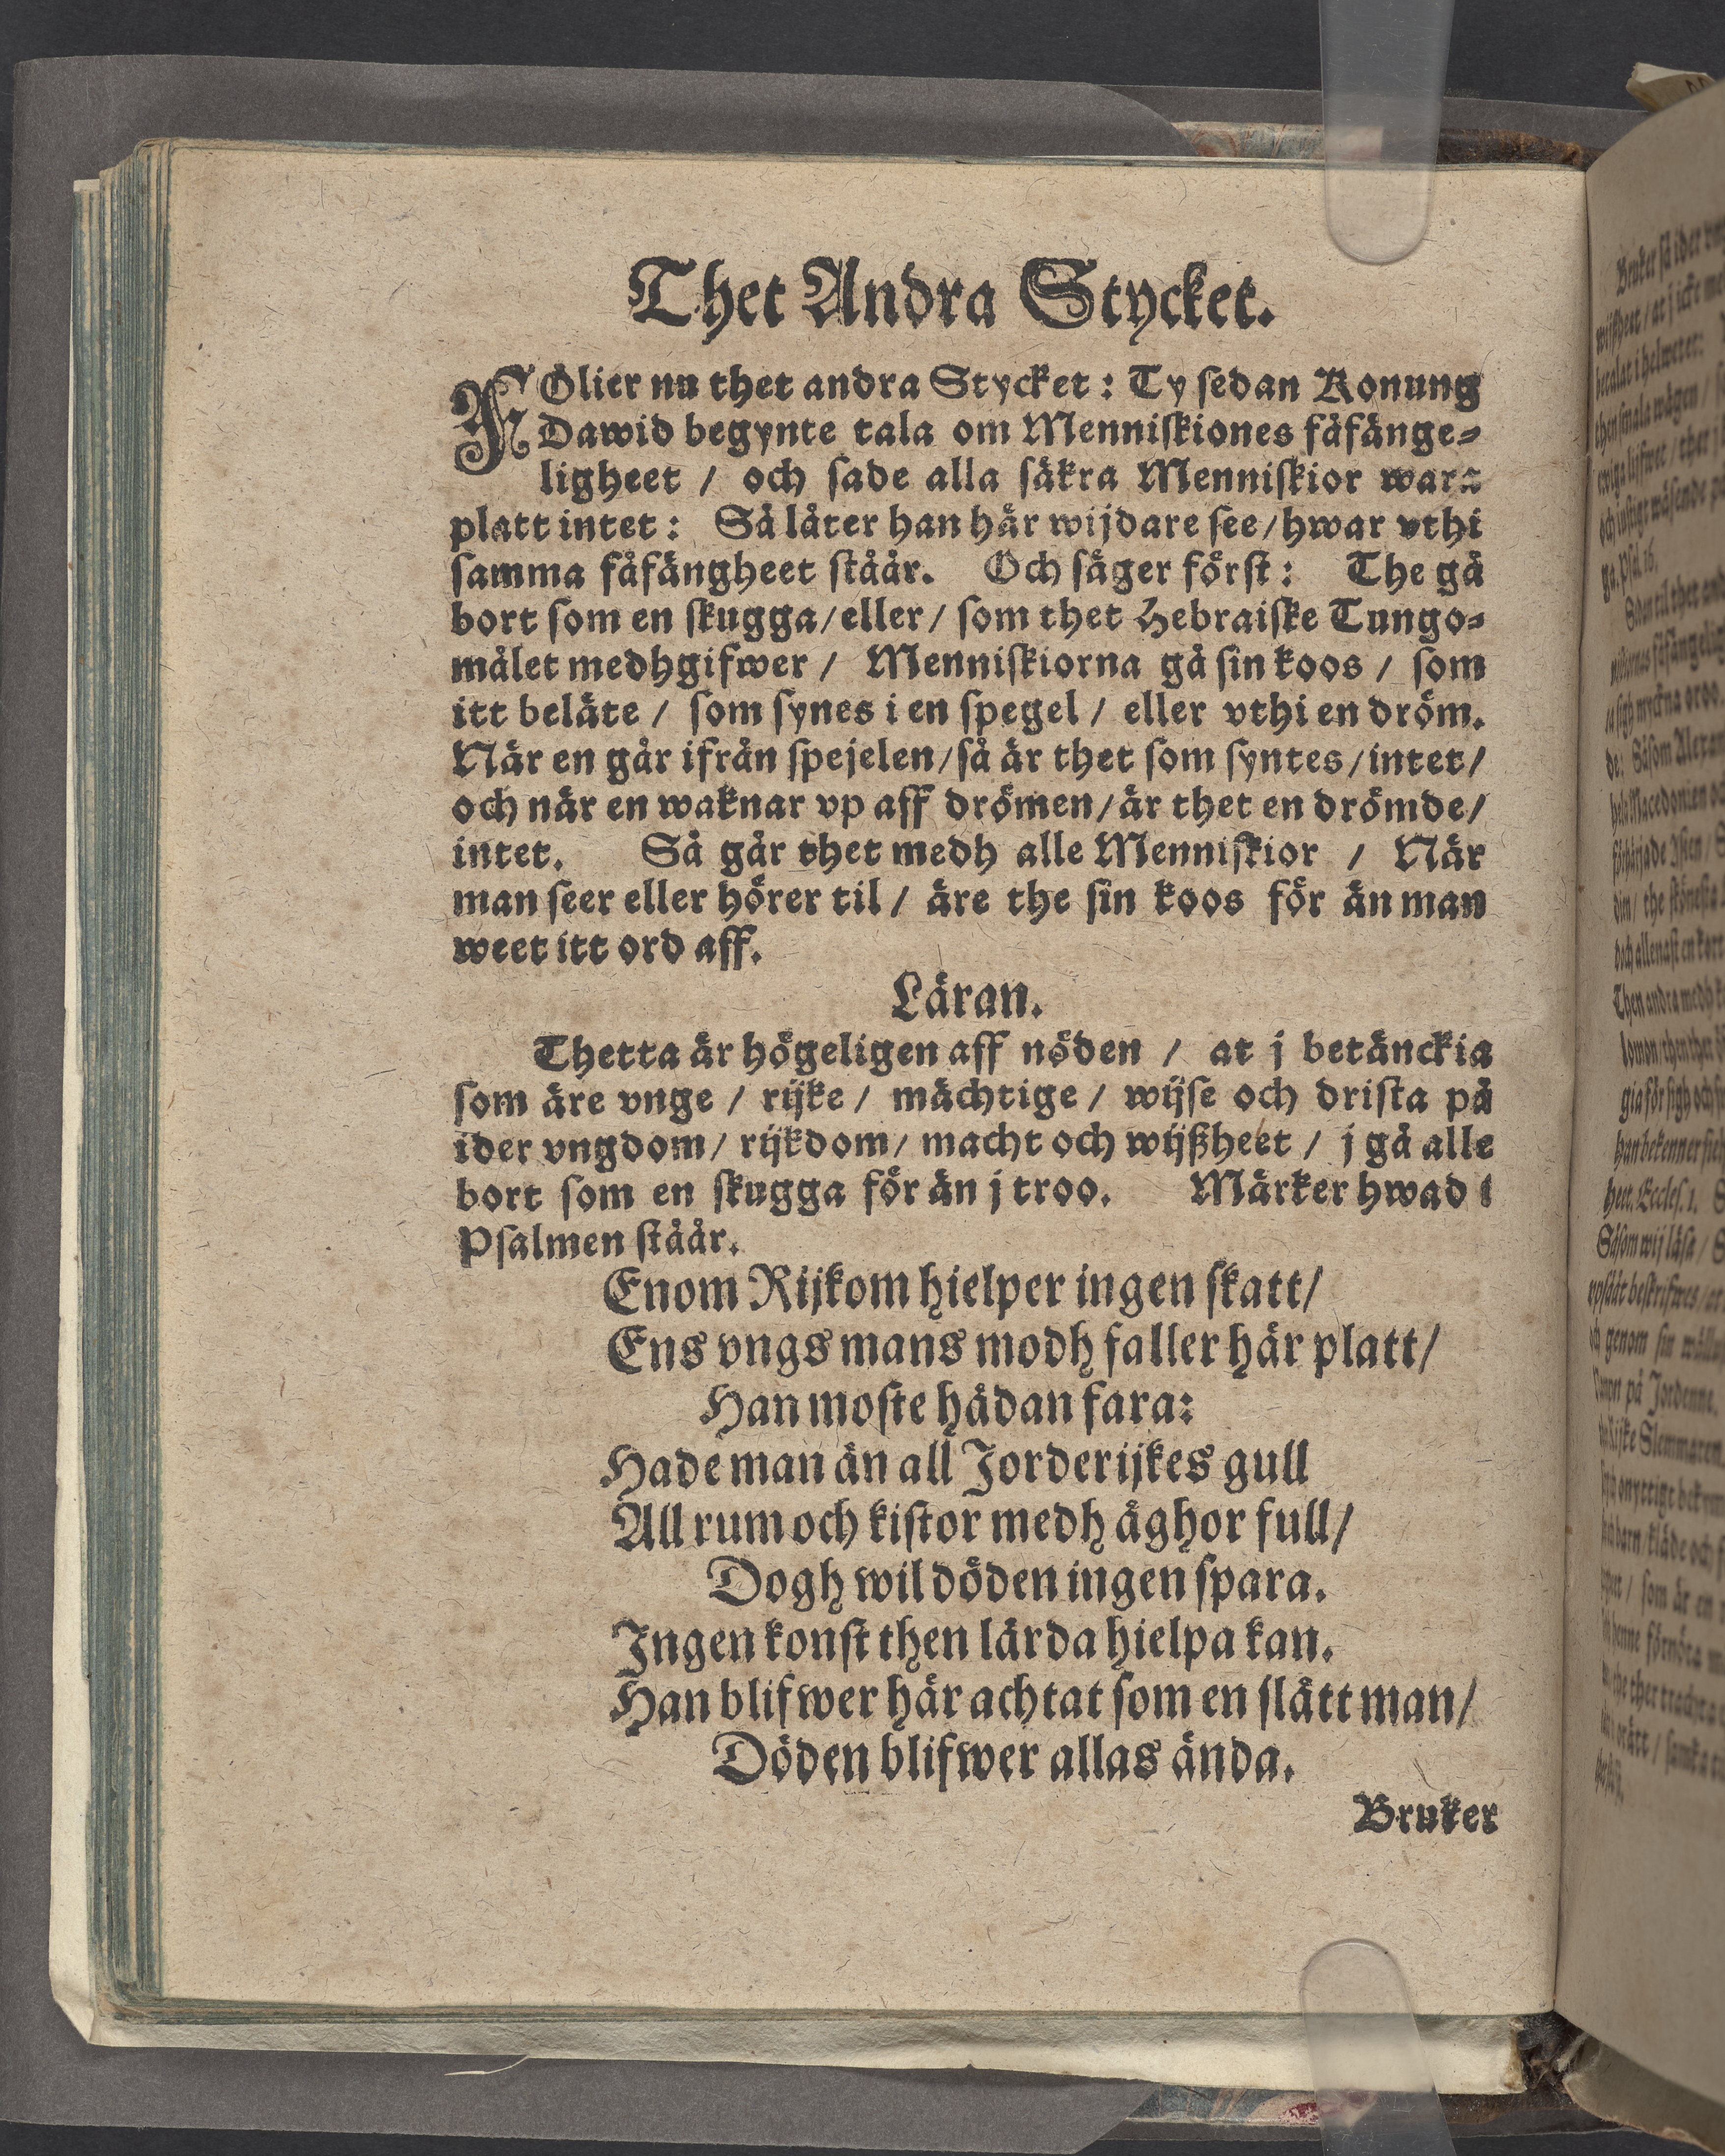 Thet Andra Stycket.
FÖlier nu thet andra Stycket: Ty sedan Konung
Dawid begynte tala om Menniskiones fåfänge-
ligheet / och sade alla säkra Menniskior wara
platt intet: Så låter han här wijdare see/hwar vthi
samma fåfängheet ståår. Och säger först: The gå
bort som en skugga/eller/ som thet Hebraiske Tungo-
målet medhgifwer / Menniskiorna gå sin koos / som
itt beläte / som synes i en spegel / eller vthi en dröm.
När en går ifrån spejelen/så är thet som syntes/intet/
och när en waknar vp aff drömen/är thet en drömde/
intet. Så går thet medh alle Menniskior / När
man seer eller hörer til / äre the sin koos för än man
weet itt ord aff.
Läran.
Thetta är högeligen aff nöden / at j betänckia
som äre vnge / rijke / mächtige / wijse och drista på
ider vngdom/ rijkdom/ macht och wijßheet / j gå alle
bort som en skugga för än j troo. Märker hwad i
Psalmen ståår.
Enom Rijkom hielper ingen skatt/
Ens vngs mans modh faller här platt/
Han moste hädan fara:
Hade man än all Jorderijkes gull
All rum och kistor medh äghor full/
Dogh wil döden ingen spara.
Ingen konst then lärda hielpa kan.
Han blifwer här achtat som en slätt man/
Döden blifwer allas ända.
Bruker